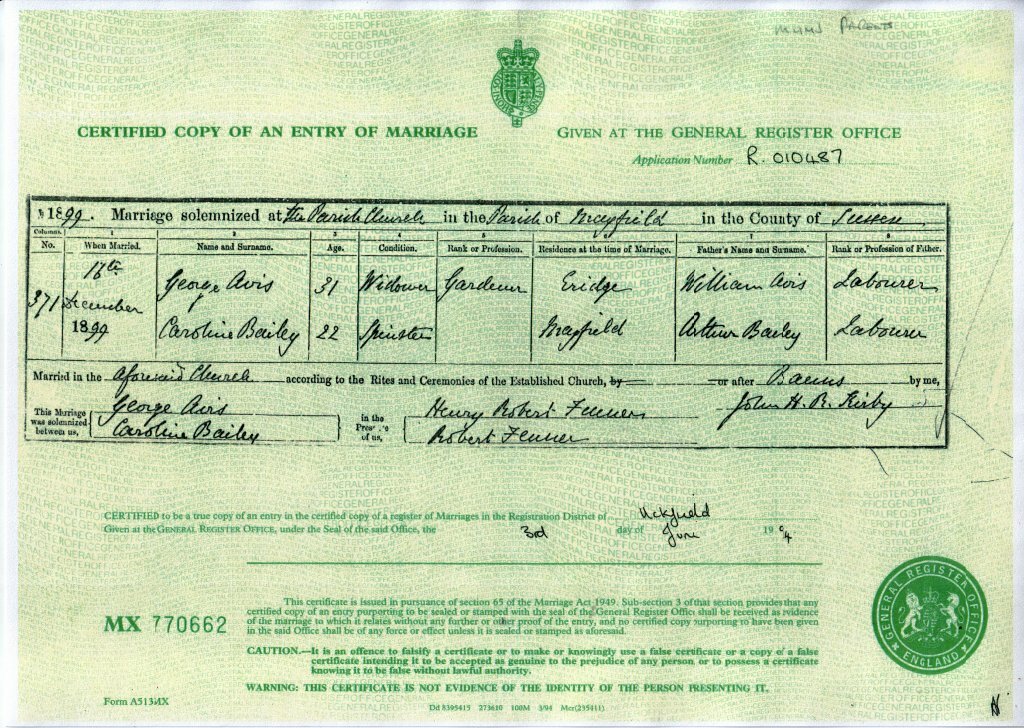 PARENTS
CERTIFIED COPY OF AN ENTRY OF MARRIAGE
GIVEN AT THE GENERAL REGISTER OFFICE
Application Number R. 010487
1899. Marriage solemnized at the Parish Church in the Parish of Mayfield in the County of Sussex
Columns. 1 2 3 4 5 6 7 8
No. When Married. Name and Surname. Age. Condition. Rank or Profession. Residence at the time of Marriage. Father's Name and Surname. Rank or Profession of Father.
George Avis 31 Widower Gardener Eridge William Avis Labourer
371 December
1899 Caroline Bailey 22 Spinster Mayfield Arthur Bailey Labourer
Married in the Aforesaid Church according to the Rites and Ceremonies of the Established Church, by or after Banns by me,
This Marriage was solemnized between us,
George Avis
Caroline Bailey
in the Presence of us,
Henry Robert Fenner
Robert Fenner
John H. R. Kirby
CERTIFIED to be a true copy of an entry in the certified copy of a register of Marriages in the Registration District of Uckfield
Given at the GENERAL REGISTER OFFICE, under the Seal of the said Office, the 3rd day of June 19 94
MX 770662
This certificate is issued in pursuance of section 65 of the Marriage Act 1949. Sub-section 3 of that section provides that any
certified copy of an entry purporting to be sealed or stamped with the seal of the General Register Office shall be received as evidence
of the marriage to which it relates without any further or other proof of the entry, and no certified copy purporting to have been given
in the said Office shall be of any force or effect unless it is sealed or stamped as aforesaid.
CAUTION.—It is an offence to falsify a certificate or to make or knowingly use a false certificate or a copy of a false
certificate intending it to be accepted as genuine to the prejudice of any person, or to possess a certificate
knowing it to be false without lawful authority.
WARNING: THIS CERTIFICATE IS NOT EVIDENCE OF THE IDENTITY OF THE PERSON PRESENTING IT.
GENERAL REGISTER OFFICE
ENGLAND
Form A513MX
Dd 8395415 273610 100M 3/94 Mcr(235411)